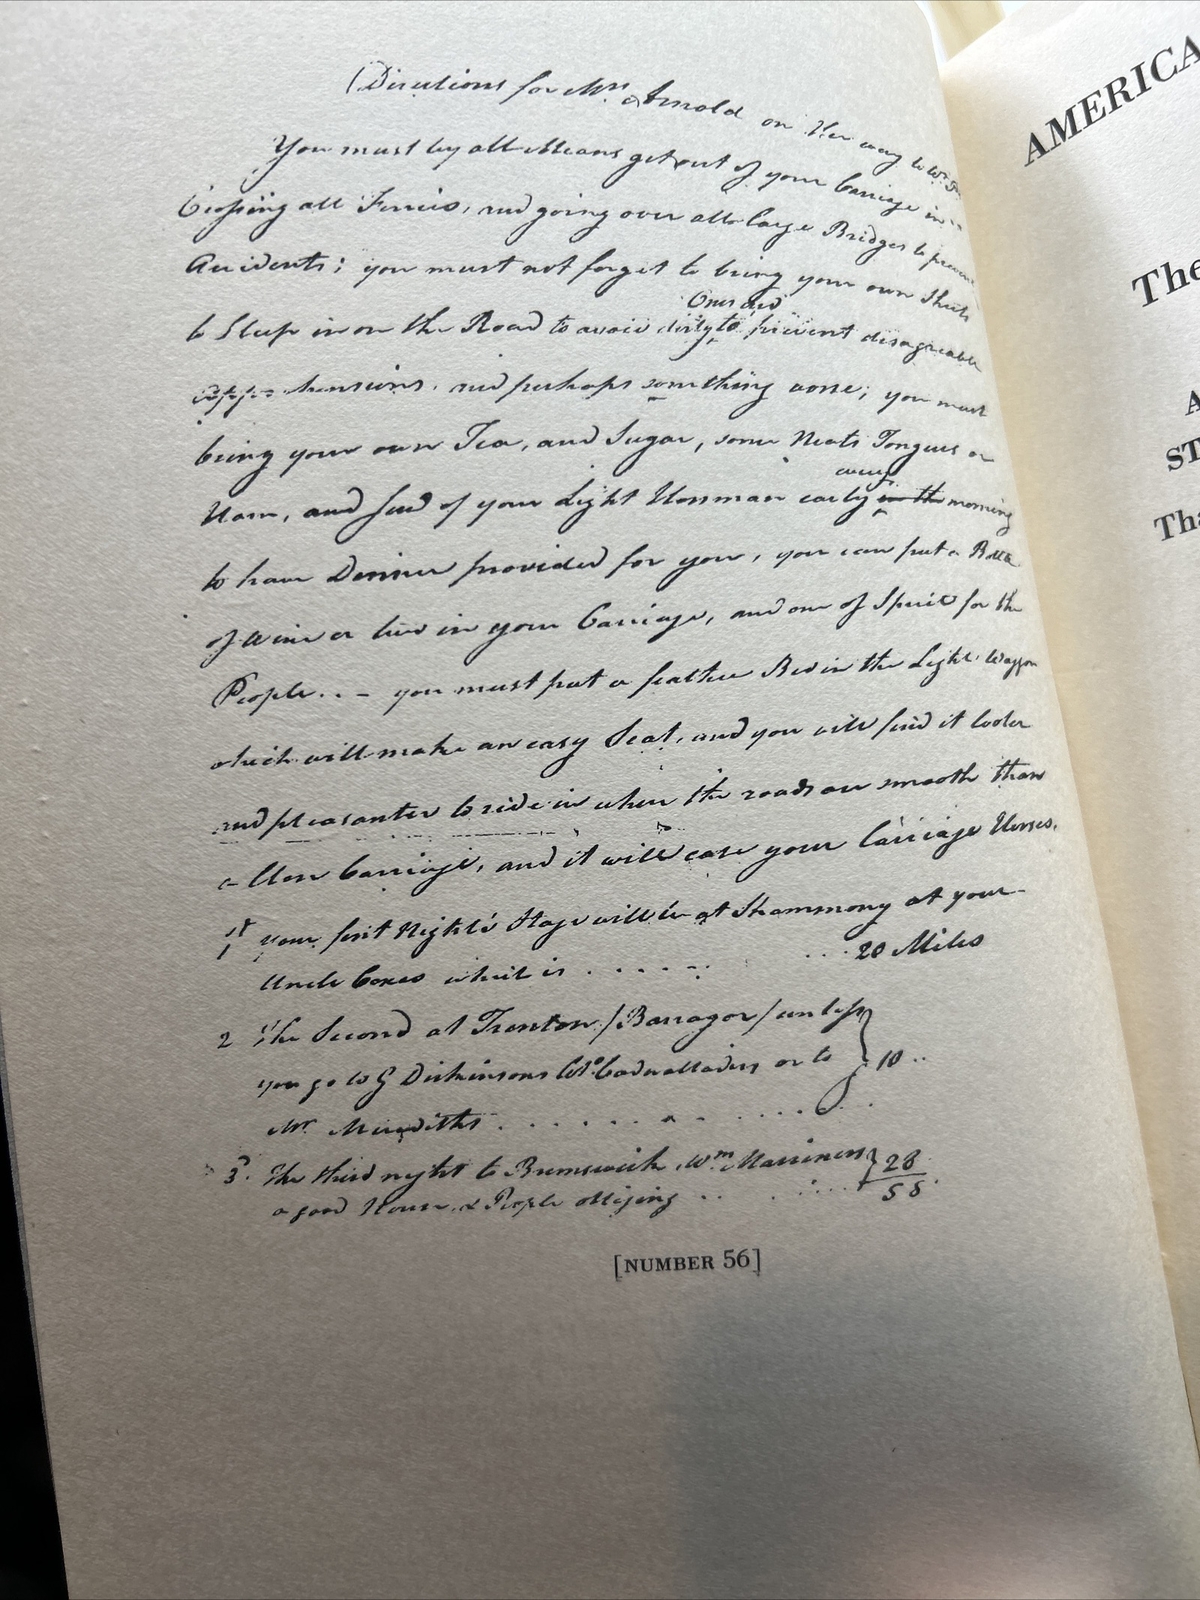 (Directions for Mrs Arnold on Her way to
You must by all Means get out of your Carriage in
Crossing all Ferries, and going over all large Bridges to prevent
Accidents; you must not forget to bring your own Sheets
Ones and
to Sleep in on the Road to avoid dirty to prevent disagreeable
Apprehensions, and perhaps something worse; you must
bring your own Tea, and Sugar, some Neats Tongues or
every
Ham, and send of your Light Horsman early in the morning
to have Dinner provided for you, you can put a
of wine or two in your Carriage, and one of Spirit for the
People.. – you must put a feather Bed in the Light Waggon
which will make an easy Seat, and you will find it cooler
and pleasanter to ride in when the roads are smooth than
a Close Carriage, and it will ease your Carriage Horses.
1st your first Night's Stage will be at Shammony at your
Uncle Coxes which is ........ 20 Miles
2 The Second at Trenton /Barragor/ unless
you go to G Dickinsons Colo. Cadwalladers or to } 10 ..
Mr. Merediths ..........
3. The third night to Brunswick, Wm Marriners } 28
a good House, & People obliging ...... 58
[NUMBER 56]
AMERICA
The
A
ST
Tha